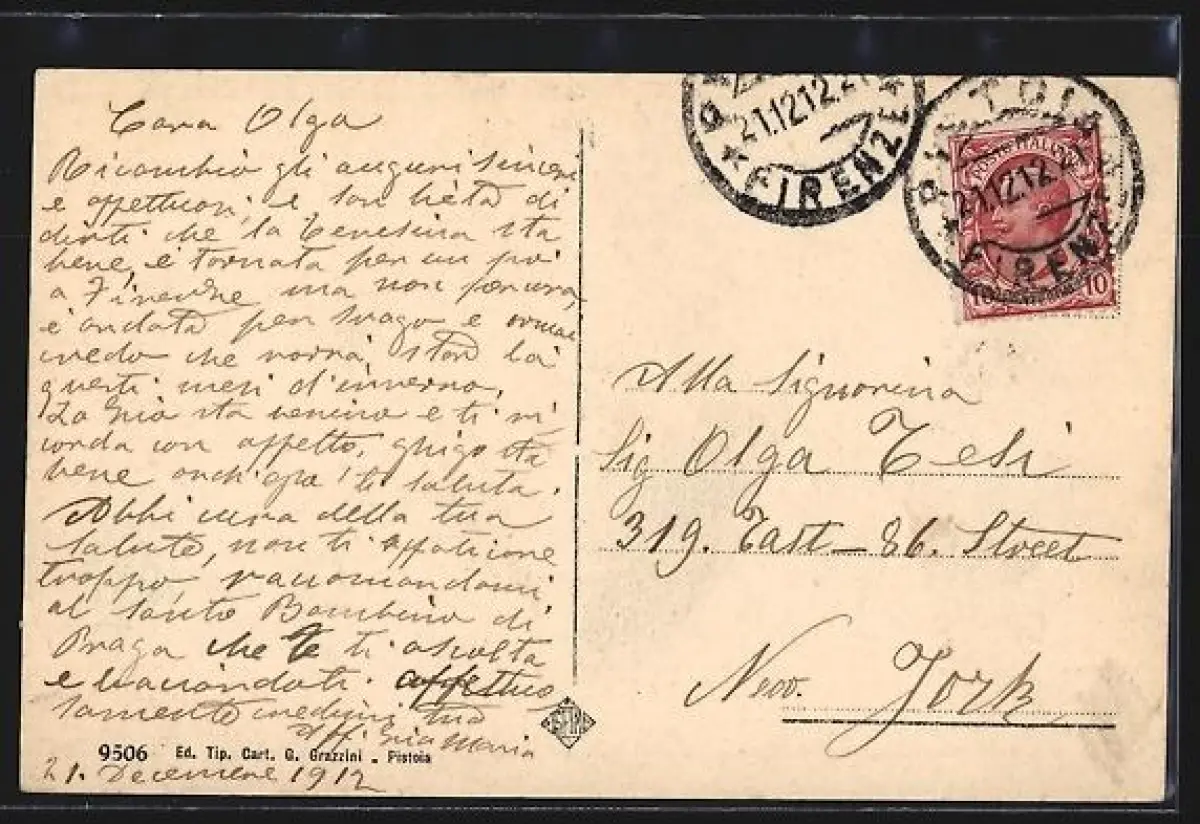 Cara Olga
Ricambio gli auguri sinceri
e affettuosi, e son lieta di
dirti che la Teresina sta
bene, è tornata per un pò
a Firenze ma non per cura,
è andata per svago e ormai
credo che vorrà star là
questi mesi d'inverno,
La Zia sta benino e ti ri
corda con affetto, ghigo sta
bene anch'egli ti saluta.
Abbi cura della tua
salute, non ti affaticare
troppo, raccomandami
al Santo Bambino di
Praga che te ti ascolta
e baciandoti affettuo
samente credimi tua
aff. Zia Maria
9506 Ed. Tip. Cart. G. Grazzini - Pistoia
21. Decembre 1912
21.12.12.21
★ FIRENZE ★
PISTOIA
21.12.12.21
FIRENZE
POSTE ITALIANE
10 10
Alla Signorina
Sig Olga Tesi
319. East - 86. Street
New. York